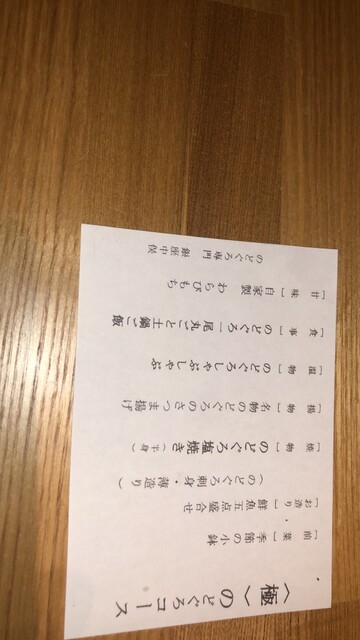 〈極〉のどぐろコース
［前 菜］季節の小鉢
［お造り］鮮魚五点盛合せ
（のどぐろ刺身・薄造り）
［焼 物］のどぐろ塩焼き（半身）
［揚 物］名物のどぐろのさつま揚げ
［温 物］のどぐろしゃぶしゃぶ
［食 事］のどぐろ一尾丸ごと土鍋ご飯
［甘 味］自家製 わらびもち
のどぐろ専門 銀座中俣